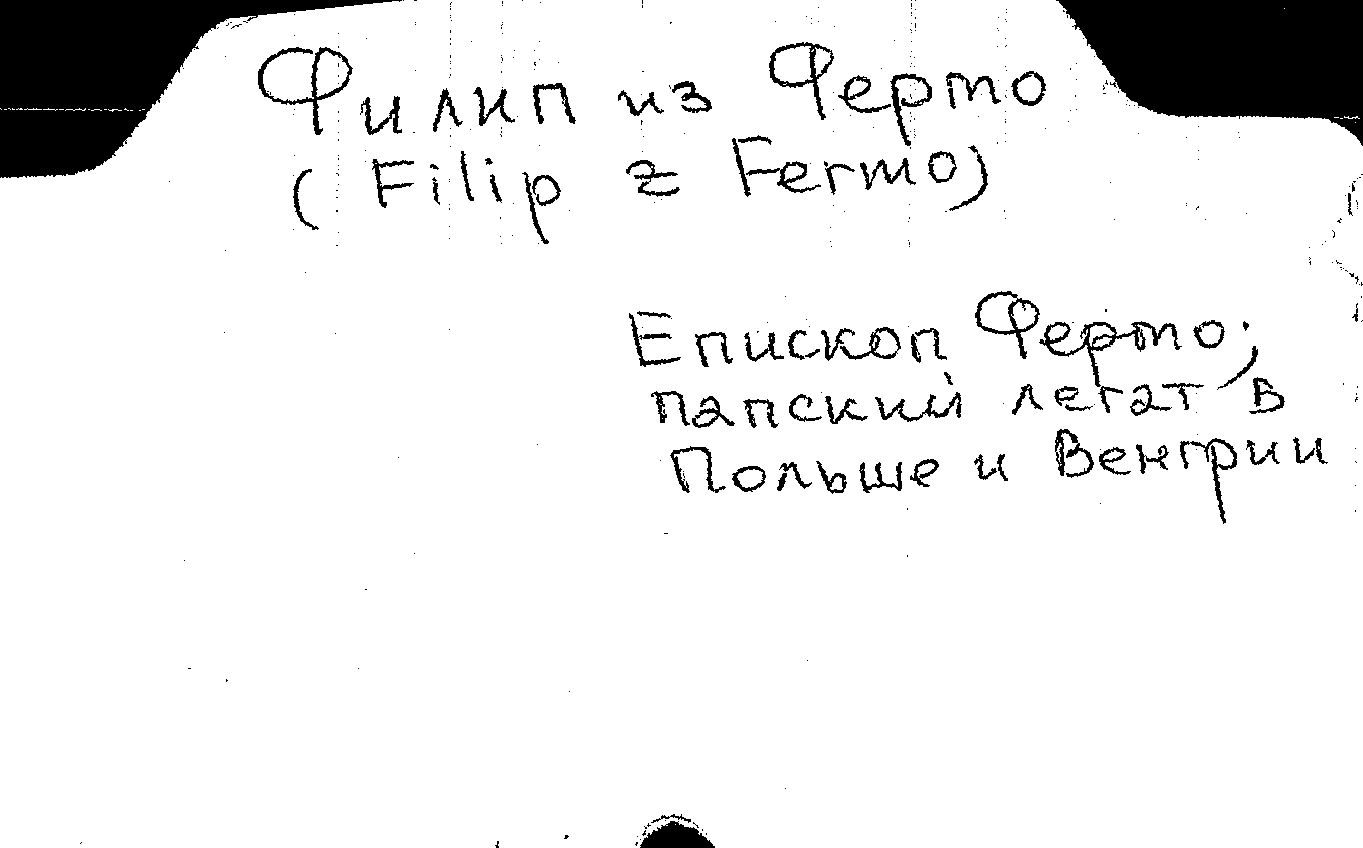 Филип из Фермо
(Filip z Fermo)
Епископ Фермо;
папский легат в
Польше и Венгрии